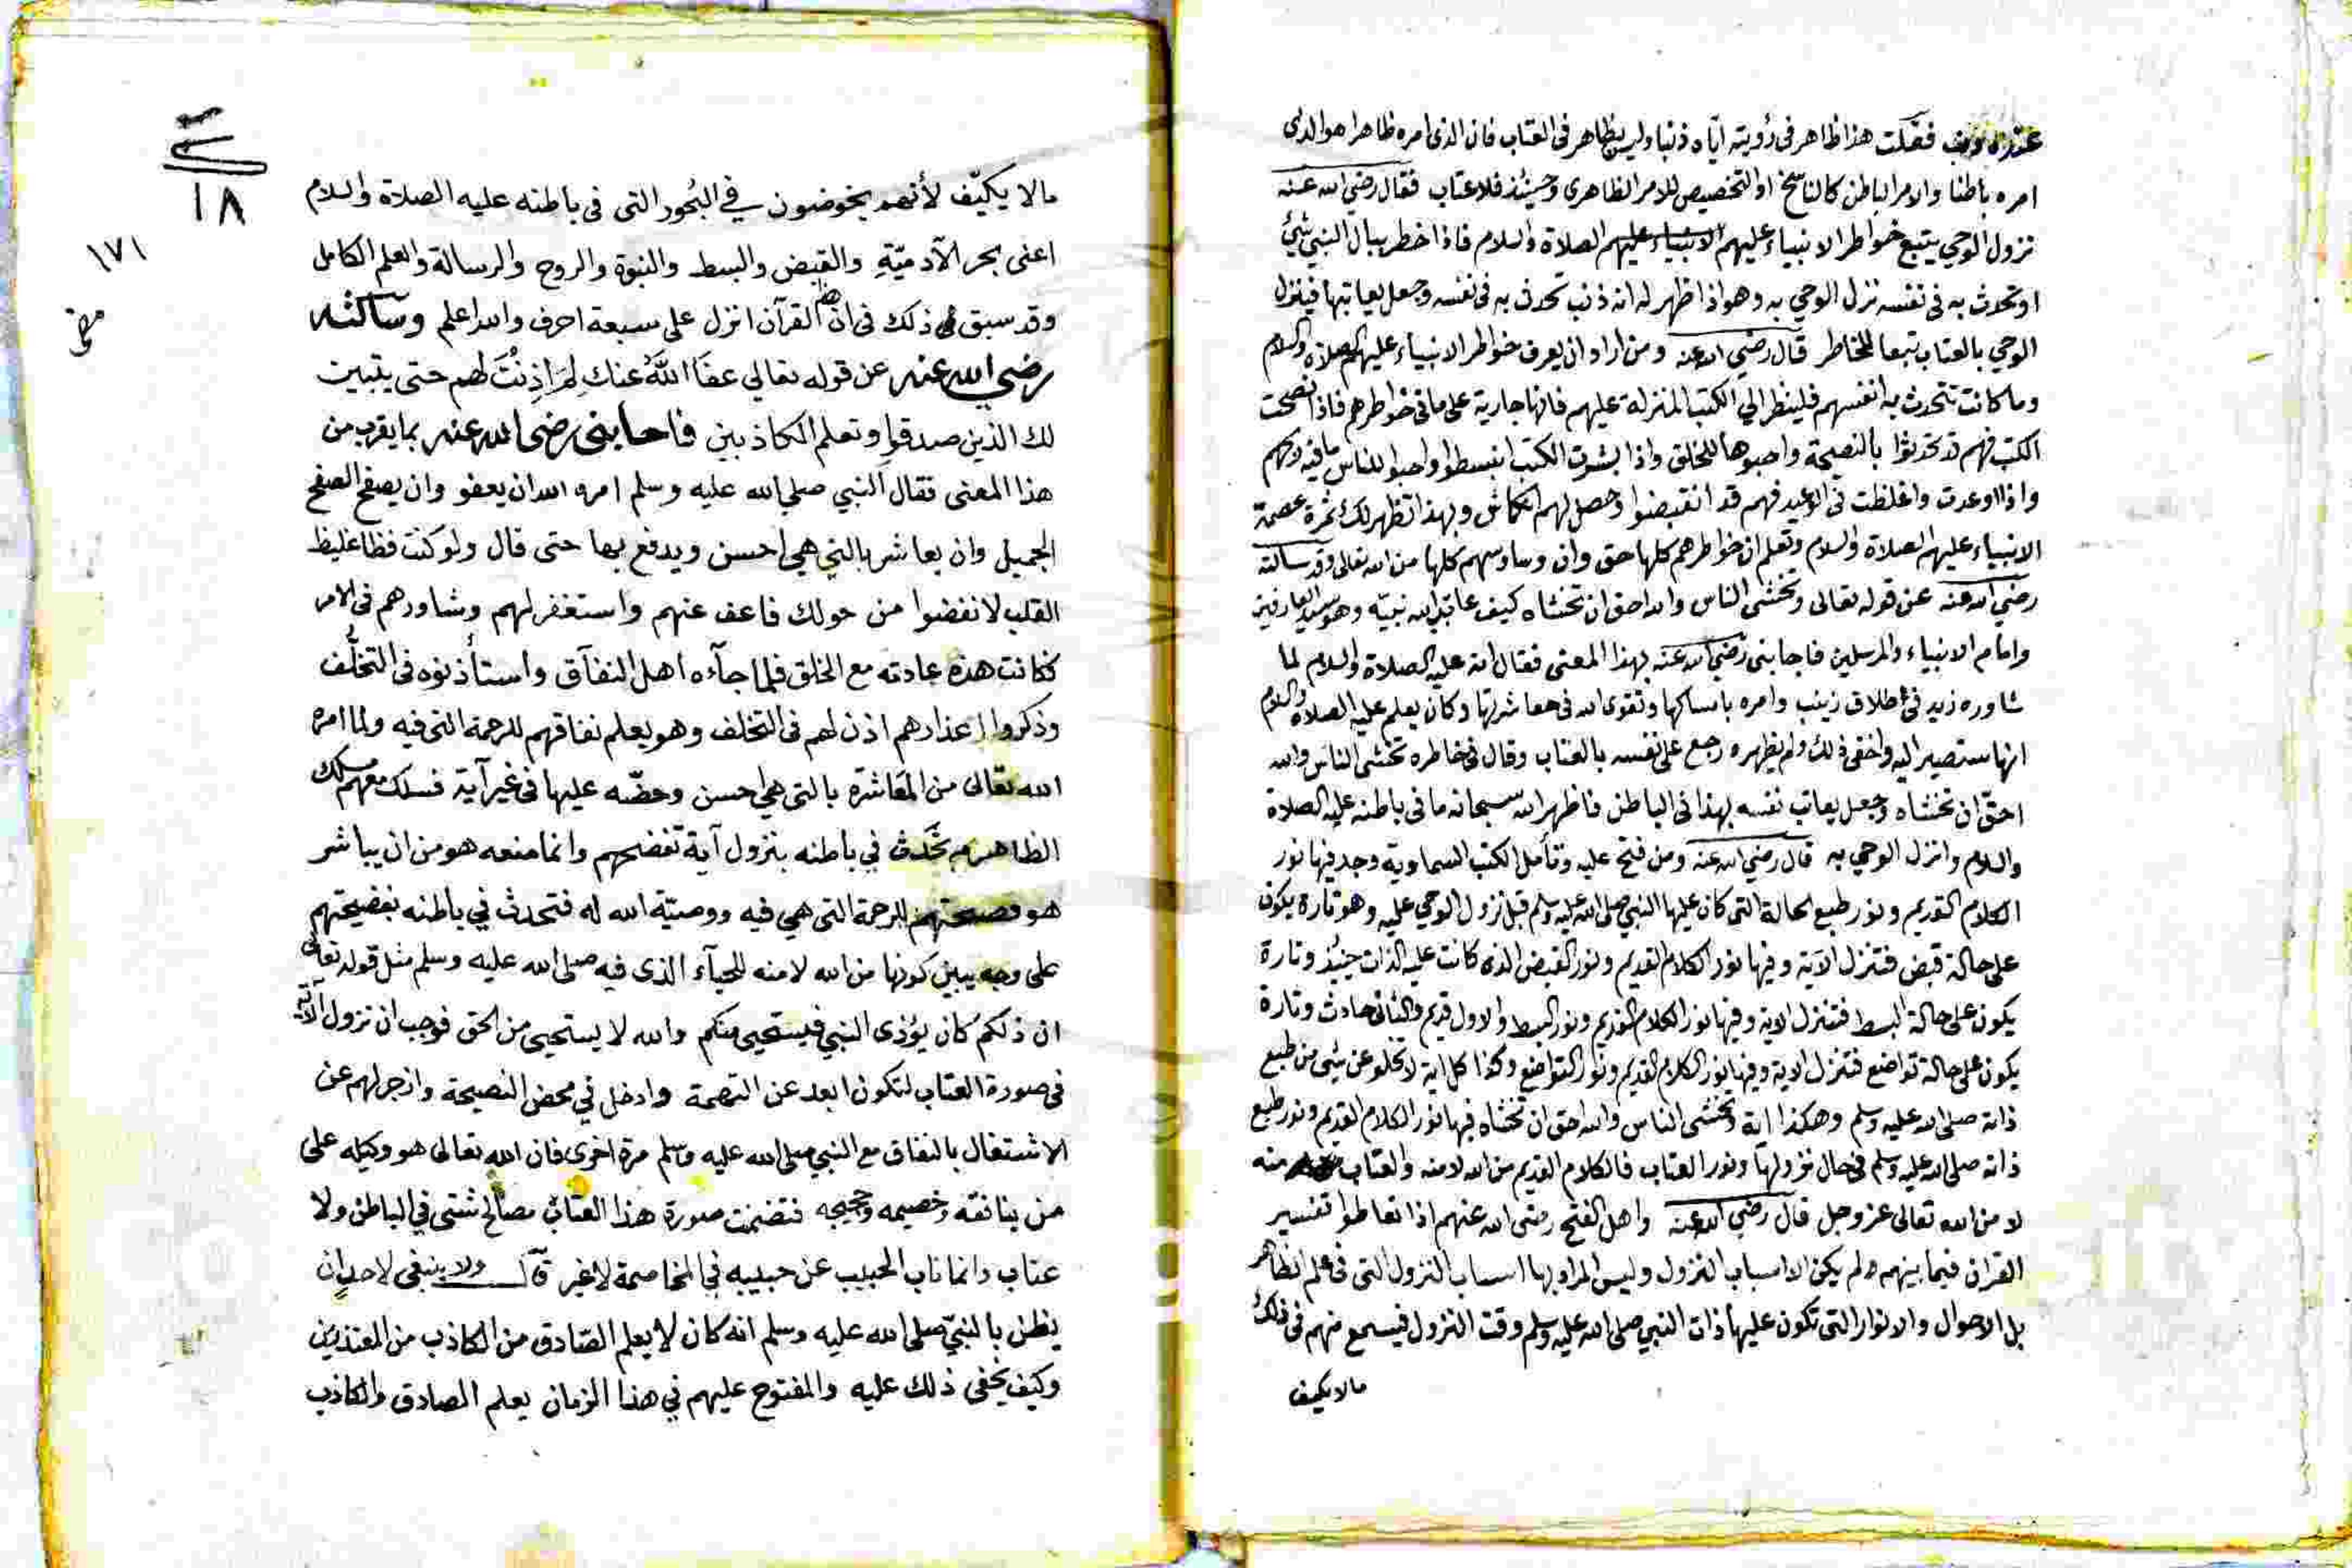 فقلت هذا ظاهر فى رؤيته اياه ذنبا وليس بظاهر فى العتاب فان الذى امره ظاهرا هو الذى
امره باطنا والامر الباطن كالناسخ او التخصيص للامر الظاهرى وحينئذ فلا عتاب فقال رضي الله عنه
نزول الوحي يتبع خواطر الانبياء عليهم الانبياء عليهم الصلاة والسلام فاذا خطر ببال النبي شئ
او تحدث به فى نفسه نزل الوحي به وهو اذا ظهر له انه ذنب تحدث به فى نفسه وجعل يعاتبها فينزل
الوحي بالعتاب تبعا للخاطر قال رضي الله عنه ومن اراد ان يعرف خواطر الانبياء عليهم الصلاة والسلام
وما كانت تتحدث به انفسهم فلينظر الي الكتب المنزلة عليهم فانها جارية على ما فى خواطرهم فاذا نصحت
الكتب فهم قد تحدثوا بالنصيحة واحبوها للخلق واذا بشرت الكتب انبسطوا واحبوا للناس ما فيه
واذا اوعدت واغلظت فى الوعيد فهم قد انقبضوا وحصل لهم انكماش وبهذا تظهر لك ثمرة عصمة
الانبياء عليهم الصلاة والسلام وتعلم ان خواطرهم كلها حق وان وساوسهم كلها من الله تعالى وقد سالته
رضي الله عنه عن قوله تعالى وتخشى الناس والله احق ان تخشاه كيف عاتب الله نبيه وهو سيد العارفين
وامام الانبياء والمرسلين فاجابنى رضي الله عنه بهذا المعنى فقال انه عليه الصلاة والسلام لما
شاوره زيد فى طلاق زينب وامره بامساكها وتقوى الله فى معاشرتها وكان يعلم عليه الصلاة والسلام
انها ستصير اليه واخفى ذلك ولم يظهره رجع على نفسه بالعتاب وقال فى خاطره تخشى الناس والله
احق ان تخشاه وجعل يعاتب نفسه بهذا فى الباطن فاظهر الله سبحانه ما فى باطنه عليه الصلاة
والسلام وانزل الوحي به قال رضي الله عنه ومن فتح عليه وتأمل الكتب السماوية وجد فيها نور
الكلام القديم ونور طبع الحالة التى كان عليها النبي صلى الله عليه وسلم قبل نزول الوحي عليه وهو تارة يكون
على حالة قبض فتنزل الآية وفيها نور الكلام القديم ونور القبض الذى كانت عليه الذات حينئذ وتارة
يكون على حالة البسط فتنزل الاية وفيها نور الكلام القديم ونور البسط والاول قديم والثانى حادث وتارة
يكون على حالة تواضع فتنزل الاية وفيها نور الكلام القديم ونور التواضع وكذا كل اية لا تخلو عن شئ من طبع
ذاته صلى الله عليه وسلم وهكذا اية وتخشى الناس والله احق ان تخشاه فيها نور الكلام القديم ونور طبع
ذاته صلى الله عليه وسلم فى حال نزولها ونور العتاب فالكلام القديم من الله لا منه والعتاب منه
لا من الله تعالى عز وجل قال رضي الله عنه واهل الفتح رضى الله عنهم اذا تعاطوا تفسير
القران فيما بينهم لم يكن الا اسباب النزول وليس المراد بها اسباب النزول التى فى علم الظاهر
بل الاحوال والانوار التى تكون عليها ذات النبي صلى الله عليه وسلم وقت النزول فيسمع منهم فى ذلك
مالا يكيف
١٨
١٧١
مالا يكيّف لأنهم يخوضون في البُحور التى فى باطنه عليه الصلاة والسلام
اعنى بحر الآدميّةِ والقبض والبسط والنبوة والروح والرسالة والعلم الكامل
وقد سبق ذلك فى ان القرآن انزل على سبعة احرف والله اعلم وسالته
رضي الله عنه عن قوله تعالي عفَا اللَّهُ عنك لِمَ اَذِنْتَ لهم حتى يتبين
لك الذين صدقوا وتعلم الكاذبين فاجابنى رضى الله عنه بما يقرب من
هذا المعنى فقال النبي صلي الله عليه وسلم امره الله ان يعفو وان يصفح الصفح
الجميل وان يعاشر بالتي هي احسن ويدفع بها حتى قال ولو كنت فظا غليظ
القلب لانفضوا من حولك فاعف عنهم واستغفر لهم وشاورهم فى الامر
فكانت هذه عادته مع الخلق فلما جآءه اهل النفاق واستأذنوه فى التخلُّف
وذكروا اعذارهم اذن لهم فى التخلف وهو يعلم نفاقهم للرحمة التى فيه ولما امره
الله تعالى من المعَاشرة بالتى هي احسن وحضّه عليها فى غير آية فسلك معهم مسلك
الظاهر تحَدث في باطنه بنزول آية تفضحهم وانما منعه هو من ان يباشر
هو فضيحتهم للرحمة التى هي فيه ووصيّة الله له فتحدث في باطنه بفضيحتهم
على وجه يبين كونها من الله لا منه للحيآء الذى فيه صلى الله عليه وسلم مثل قوله تعالى
ان ذلكم كان يؤذى النبي فيستحيى منكم والله لا يستحيى من الحق فوجب ان نزول الآية
فى صورة العتاب لتكون ابعد عن التهمة وادخل في محض النصيحة وازجر لهم عن
الاشتغال بالنفاق مع النبي صلى الله عليه وسلم مرة اخرى فان الله تعالى هو وكيله على
من ينافقه وخصيمه وحجيجه فتضمنت صورة هذا العتاب مصالح شتى في الباطن ولا
عتاب وانما ناب الحبيب عن حبيبه في المخاصمة لا غير قال ولا ينبغى لاحدٍ ان
يظن بالنبيّ صلى الله عليه وسلم انه كان لا يعلم الصّادق من الكاذب من المعتذرين
وكيف يخفى ذلك عليه والمفتوح عليهم في هذا الزمان يعلم الصادق والكاذب